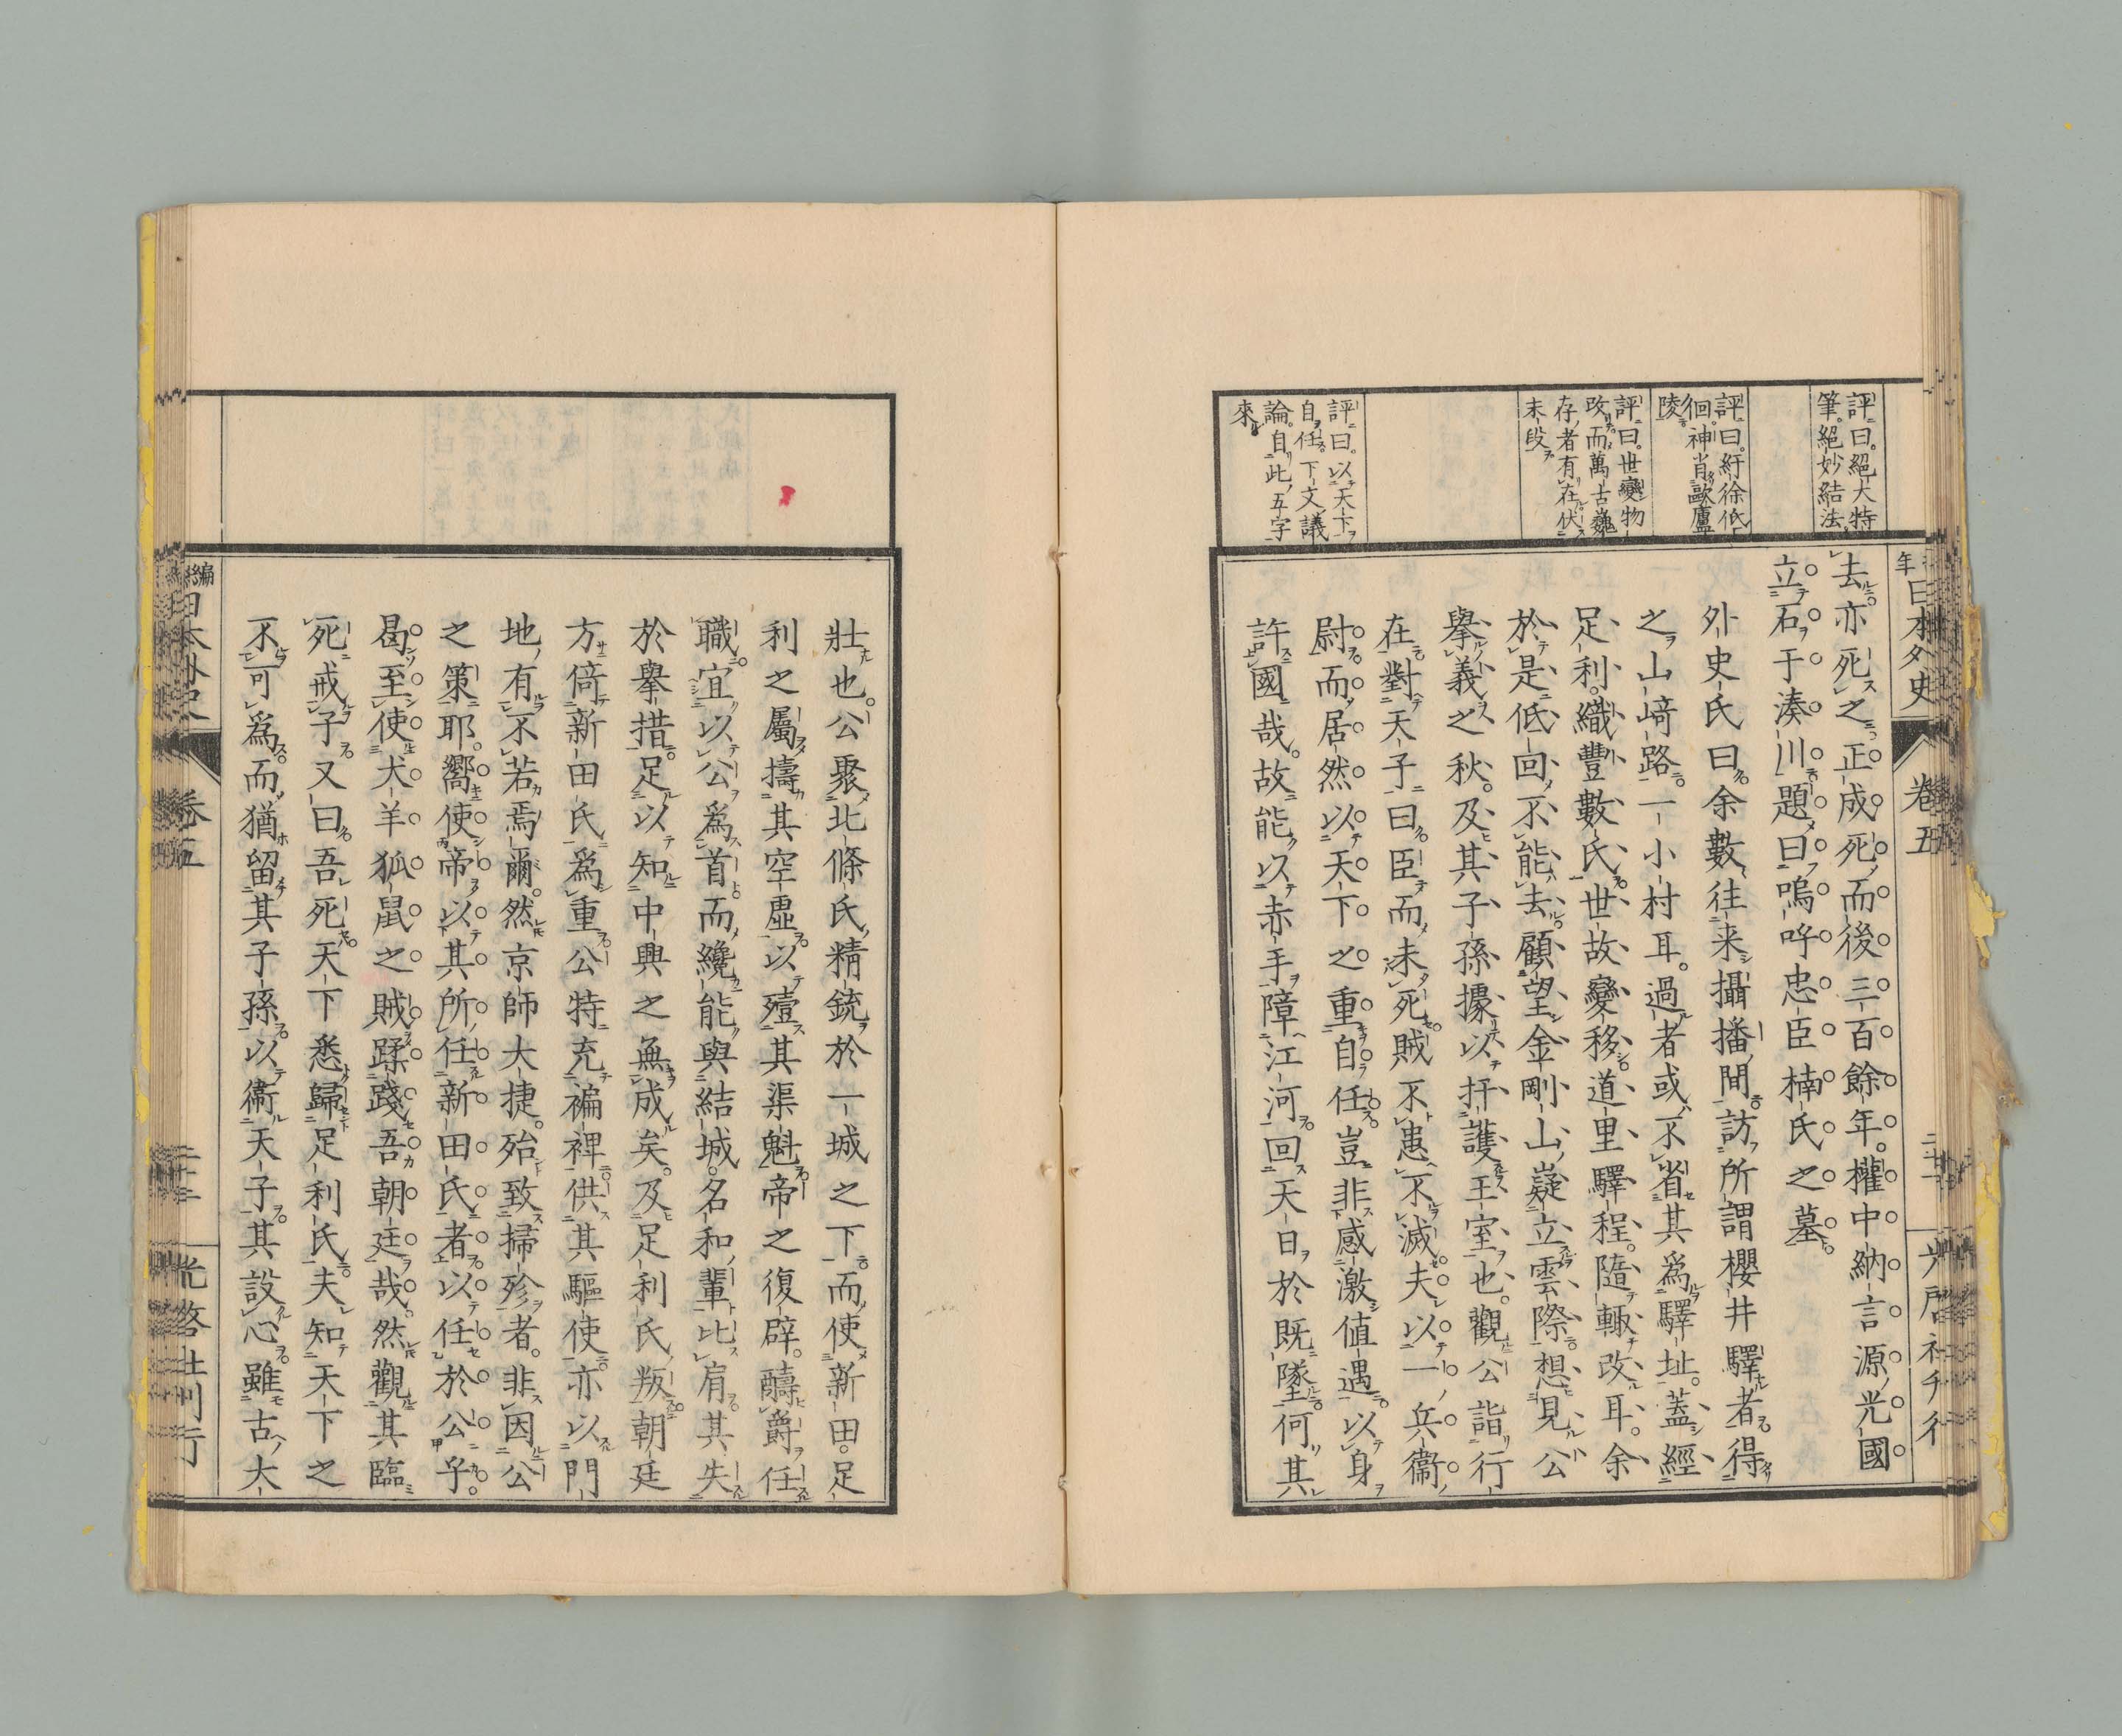 日本外史
卷五
評曰。絕大特
筆。絕妙結法
評曰。紆徐低
徊。神肖歐廬
陵
評曰。世變物
改。而萬古巍
存者有在。伏
末段
評曰。以天下
自任。下文議
論。自此五字
來
去。亦死之。正成死而後三百餘年。權中納言源光國
立石于湊川。題曰嗚呼忠臣楠氏之墓
外史氏曰。余數往来攝播間。訪所謂櫻井驛者。得
之山﨑路。一小村耳。過者或不省其為驛址。蓋經
足利織豐數氏。世故變移。道里驛程。隨輙改耳。余
於是低回不能去。顧望金剛山。嶷立雲際。想見公
擧義之秋。及其子孫據以扞護王室也。觀公詣行
在。對天子曰。臣而未死。賊不患不滅。夫以一兵衞
尉。而居然以天下之重自任。豈非感激値遇。以身
許國哉。故能以赤手障江河。回天日於既墜。何其
壯也。公聚北條氏精銃於一城之下。而使新田。足
利之屬擣其空虛。以殪其渠魁。帝之復辟。疇爵任
職。宜以公為首。而纔能與結城。名和輩比肩。其失
於擧措。足以知中興之無成矣。及足利氏叛朝廷
方倚新田氏為重。公特充褊裨。供其驅使。亦以門
地有不若焉爾。然京師大捷。殆致掃殄者。非因公
之策耶。嚮使帝以其所任新田氏者。以任於公乎。
曷至使犬羊狐鼠之賊蹂踐吾朝廷哉。然觀其臨
死戒子。又曰。吾死。天下悉歸足利氏。夫知天下之
不可為。而猶留其子孫以衞天子。其設心。雖古大
編年
日本外史
卷五
光啓社刊行